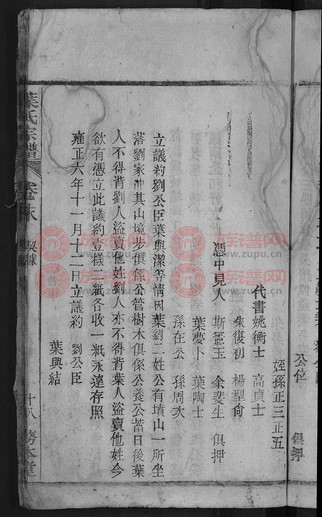 公位 俱押
姪孫正三正五
代書姚衡士 高貞士
朱後初 楊聖尙
憑中見人 吳靈玉 余斐生 俱押
葉夢卜 葉陶士
孫在公 孫周次
立議約劉公臣葉與潔等情因葉劉二姓公有墳山一所坐
落劉家冲其山境步俱係公管樹木俱係公養公蓄日後葉
人不得背劉人盜賣他姓劉人亦不得背葉人盜賣他姓今
欲有憑立此議約壹樣二紙各收一紙永遠存照
雍正六年十一月十二日立議約 劉公臣
葉與結
葉氏宗譜 卷末 契據 十八 務本堂
族譜网
www.zupu.cn